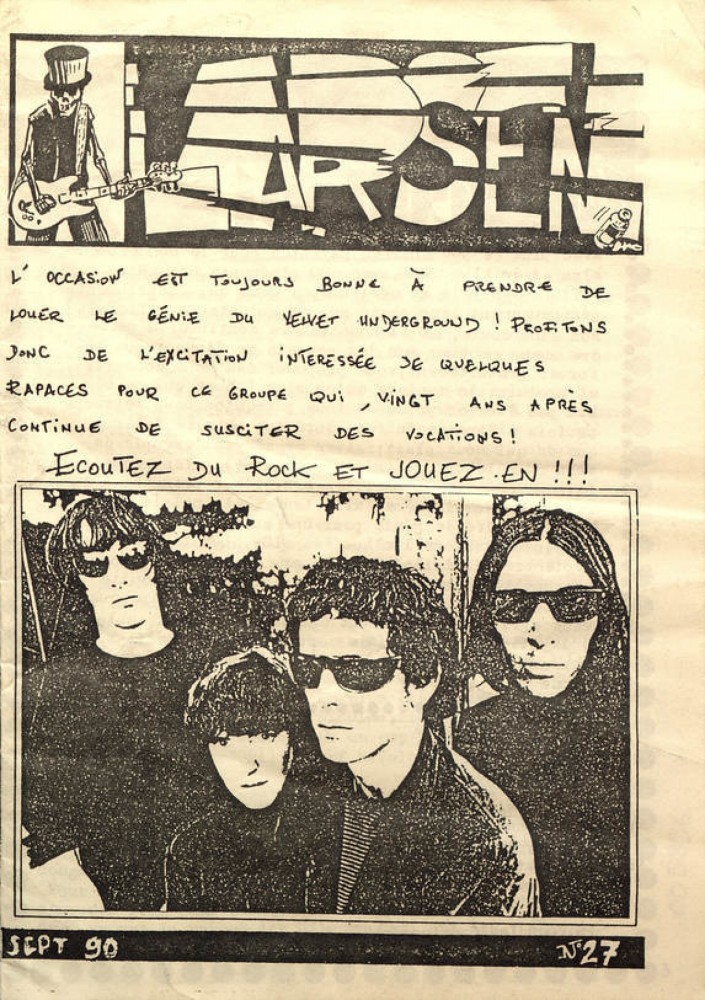 LARSEN
L'OCCASION EST TOUJOURS BONNE À PRENDRE DE
LOUER LE GÉNIE DU VELVET UNDERGROUND ! PROFITONS
DONC DE L'EXCITATION INTERESSÉE DE QUELQUES
RAPACES POUR CE GROUPE QUI, VINGT ANS APRÈS
CONTINUE DE SUSCITER DES VOCATIONS !
ECOUTEZ DU ROCK ET JOUEZ.EN !!!
SEPT 90
N°27